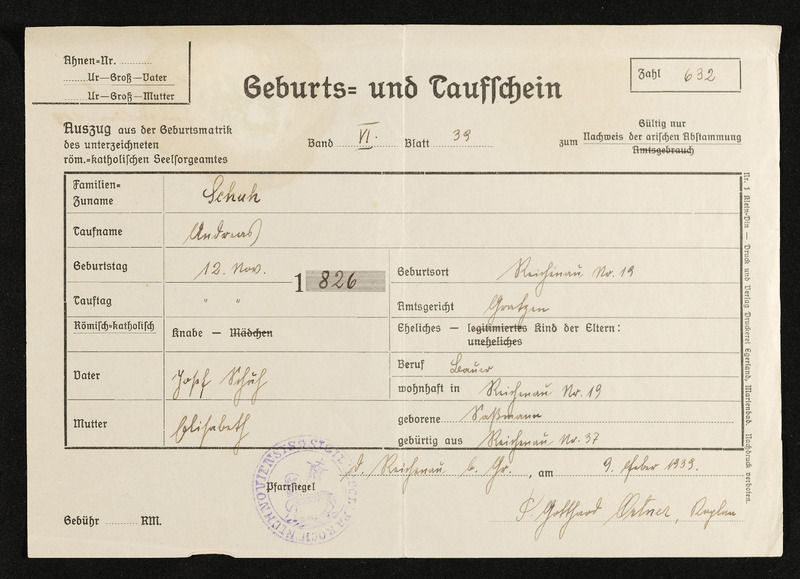 Ahnen=Nr. ............
........Ur—Groß—Vater
...... Ur—Groß—Mutter
Geburts= und Taufschein
Zahl 632
Auszug aus der Geburtsmatrik
des unterzeichneten
röm.=katholischen Seelsorgeamtes
Band VI. Blatt 39
Gültig nur
zum Nachweis der arischen Abstammung
Amtsgebrauch
Familien=
Zuname Schuh
Taufname Andreas
Geburtstag 12. Nov.
1826
Geburtsort Reichenau Nr. 19
Tauftag " "
Amtsgericht Gratzen
Römisch=katholisch Knabe — Mädchen
Eheliches — legitimiertes Kind der Eltern:
uneheliches
Vater Josef Schuh
Beruf Bauer
wohnhaft in Reichenau Nr. 19
Mutter Elisabeth
geborene Saßmann
gebürtig aus Reichenau Nr. 37
Reichenau b. Gr., am 9. feber 1939.
Pfarrsiegel
P. Gotthard Ortner, Kaplan
Gebühr ........ RM.
Nr. 1 Klein=Din — Druck und Verlag Druckerei Egerland, Marienbad. Nachdruck verboten.